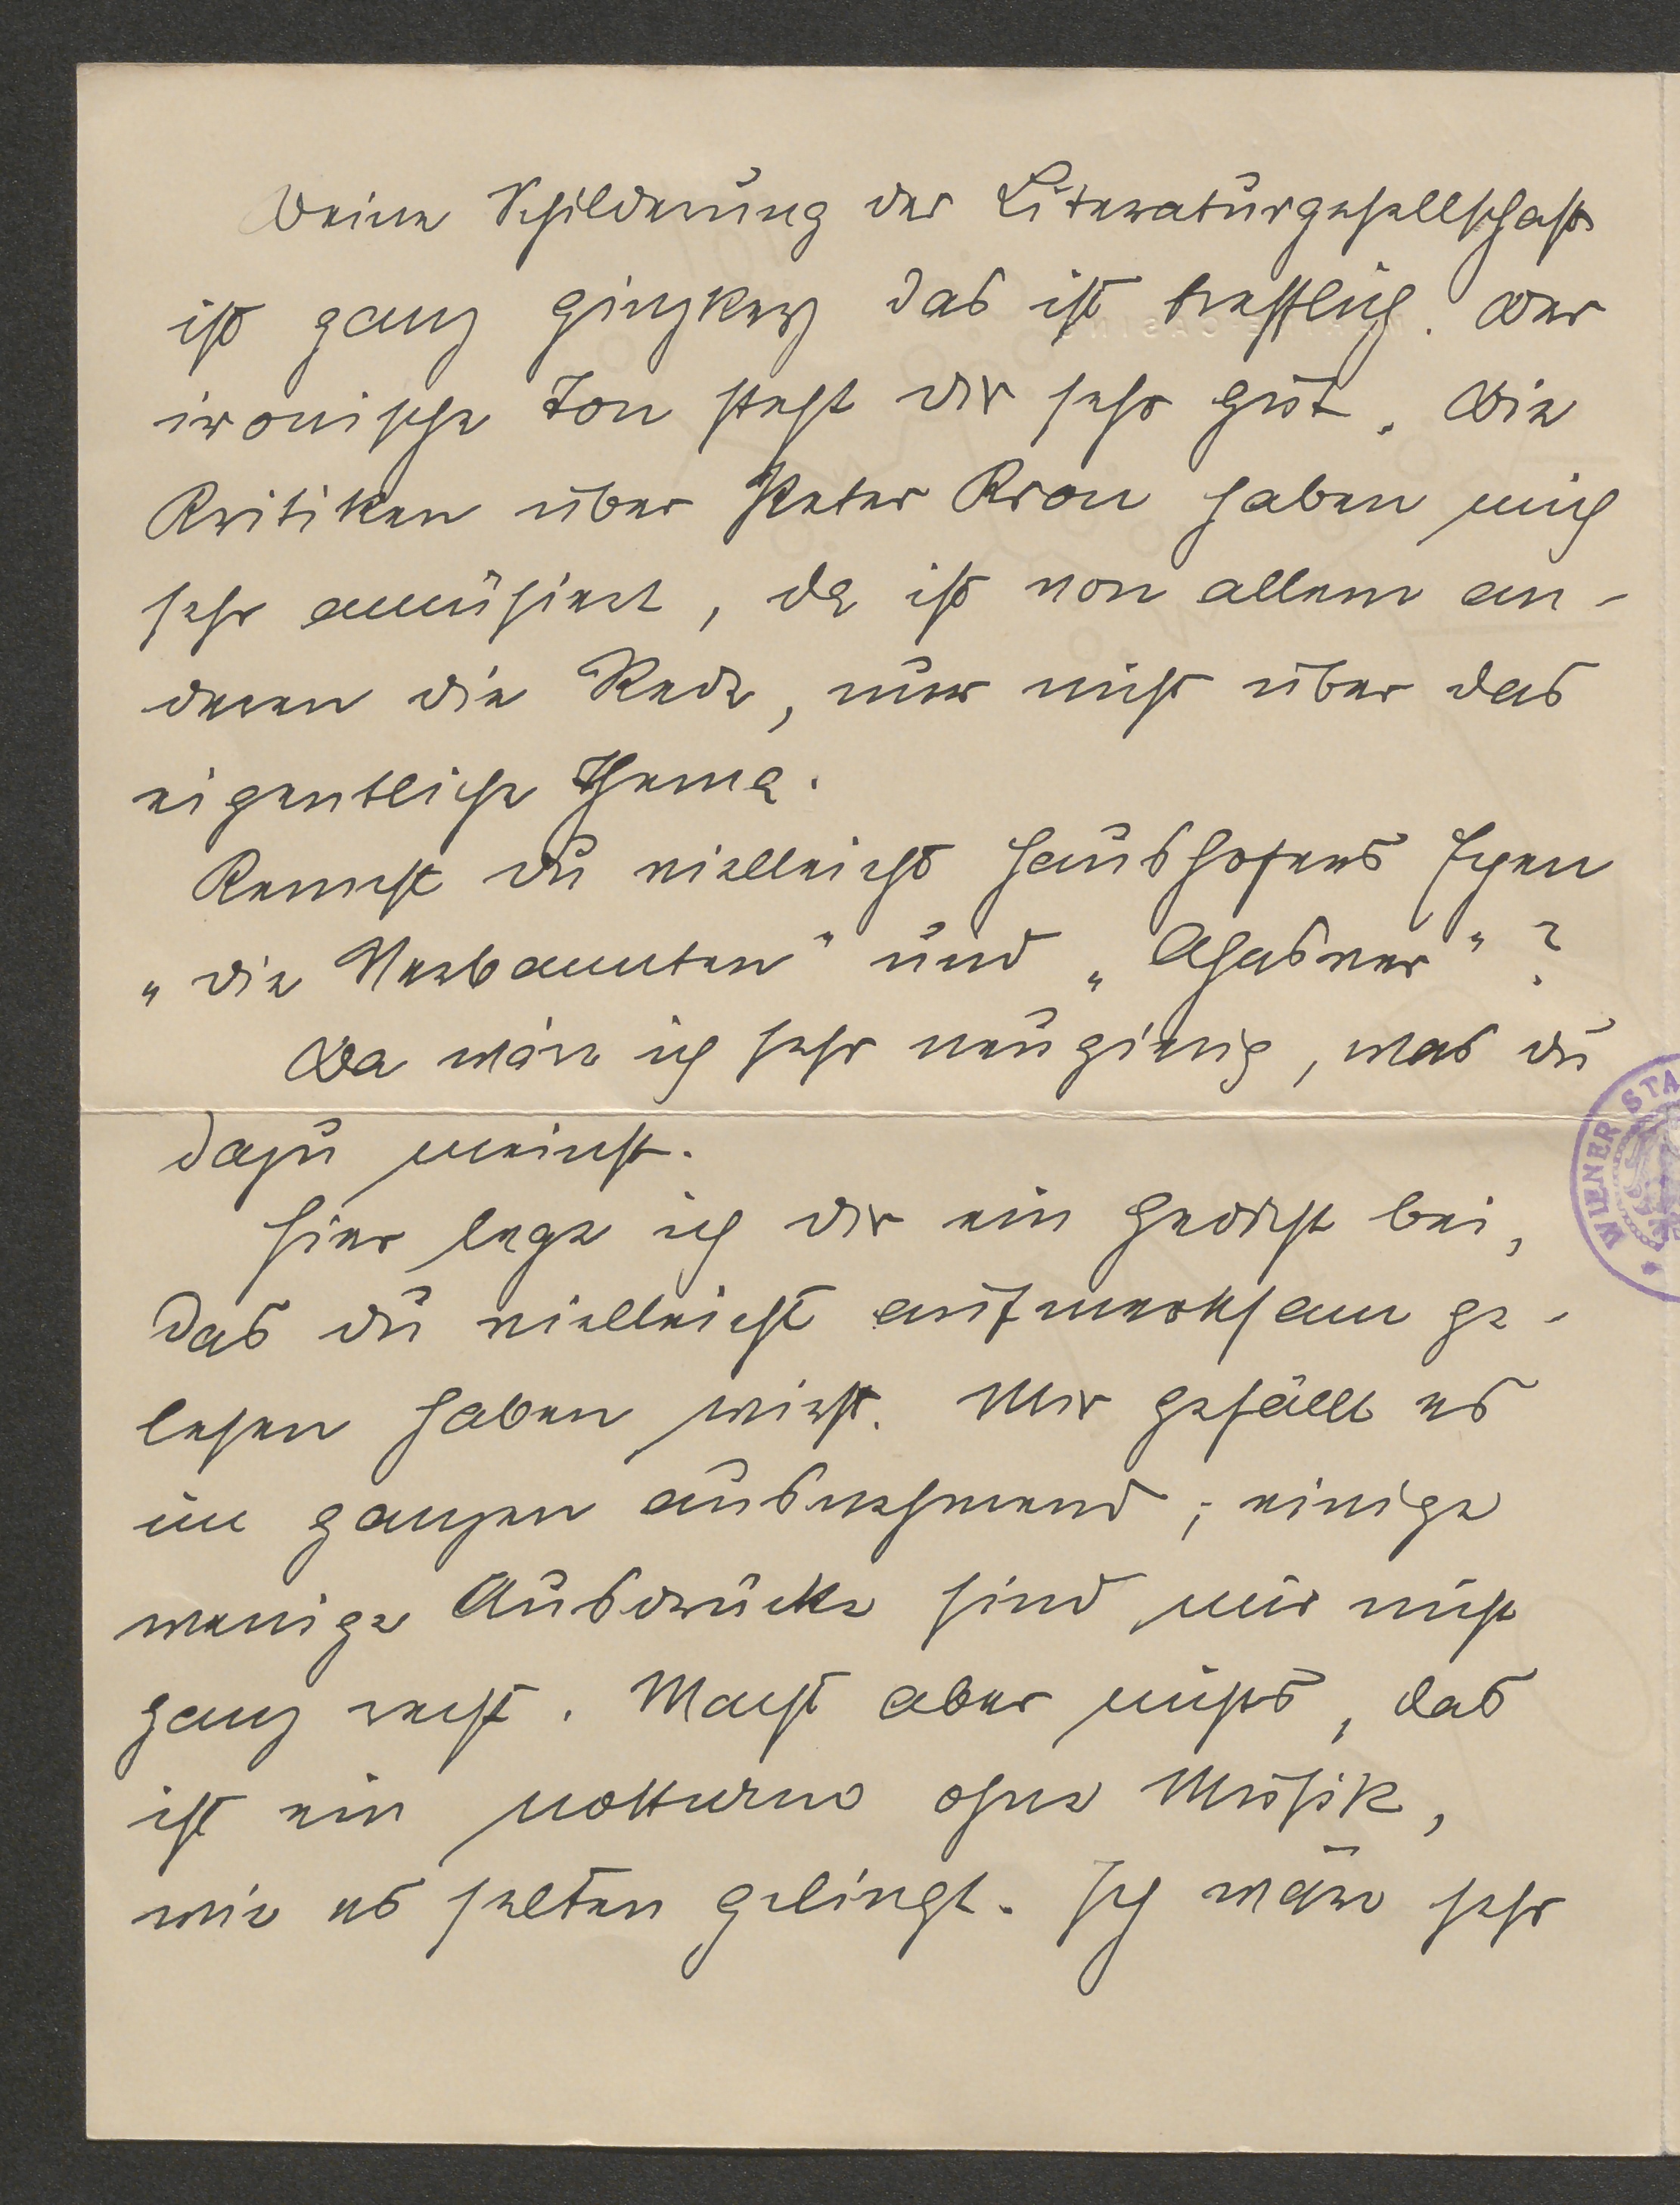 Deine Schilderung der Literaturgesellschaft
ist ganz Ginzkey das ist trefflich. Der
ironische Ton steht dir sehr gut. Die
Kritiken über Peter Kron haben mich
sehr amüsiert, da ist von allem an-
deren die Rede, nur nicht über das
eigentliche Thema.
Kennst du vielleicht Haushofers Epen
„die Verbannten" und „Ahasver"?
Da wäre ich sehr neugierig, was du
dazu meinst.
Hier lege ich dir ein Gedicht bei,
das du vielleicht aufmerksam ge-
lesen haben wirst. Mir gefällt es
im ganzen ausnehmend; einige
wenige Ausdrücke sind mir nicht
ganz recht. Macht aber nichts, das
ist ein notturno ohne Musik,
wie es selten gelingt. Ich wäre sehr
WIENER STA